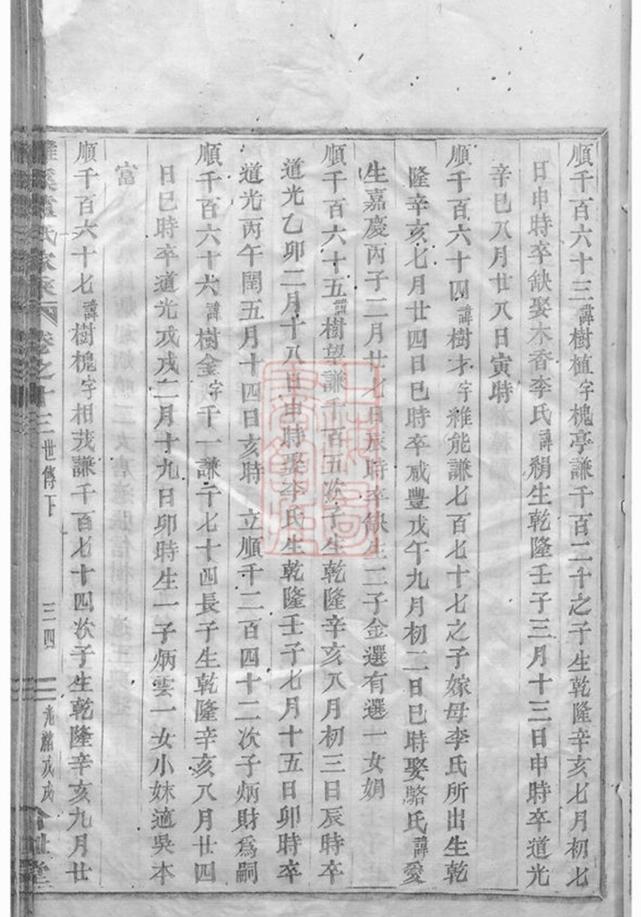 順千百六十三諱樹植字槐亭謙千百二十之子生乾隆辛亥七月初七
日申時卒缺娶木香李氏諱絹生乾隆壬子三月十三日申時卒道光
辛巳八月廿八日寅時
順千百六十四諱樹才字雅能謙七百七十七之子嫁母李氏所出生乾
隆辛亥七月廿四日巳時卒咸豐戊午九月初二日巳時娶駱氏諱愛
生嘉慶丙子二月廿七日辰時卒缺生二子金選有選一女娟
順千百六十五諱樹望謙千百五次子生乾隆辛亥八月初三日辰時卒
道光乙卯二月十八日申時娶李氏生乾隆壬子七月十五日卯時卒
道光丙午閏五月十四日亥時 立順千二百四十二次子炳財為嗣
順千百六十六諱樹金字千一謙千七十四長子生乾隆辛亥八月廿四
日巳時卒道光戊戌二月十九日卯時生一子炳雲一女小妹適吳本
富
順千百六十七諱樹槐字相茂謙千百七十四次子生乾隆辛亥九月廿
氏家 卷之十三 世傳下 三四 光緒戊戌 堂